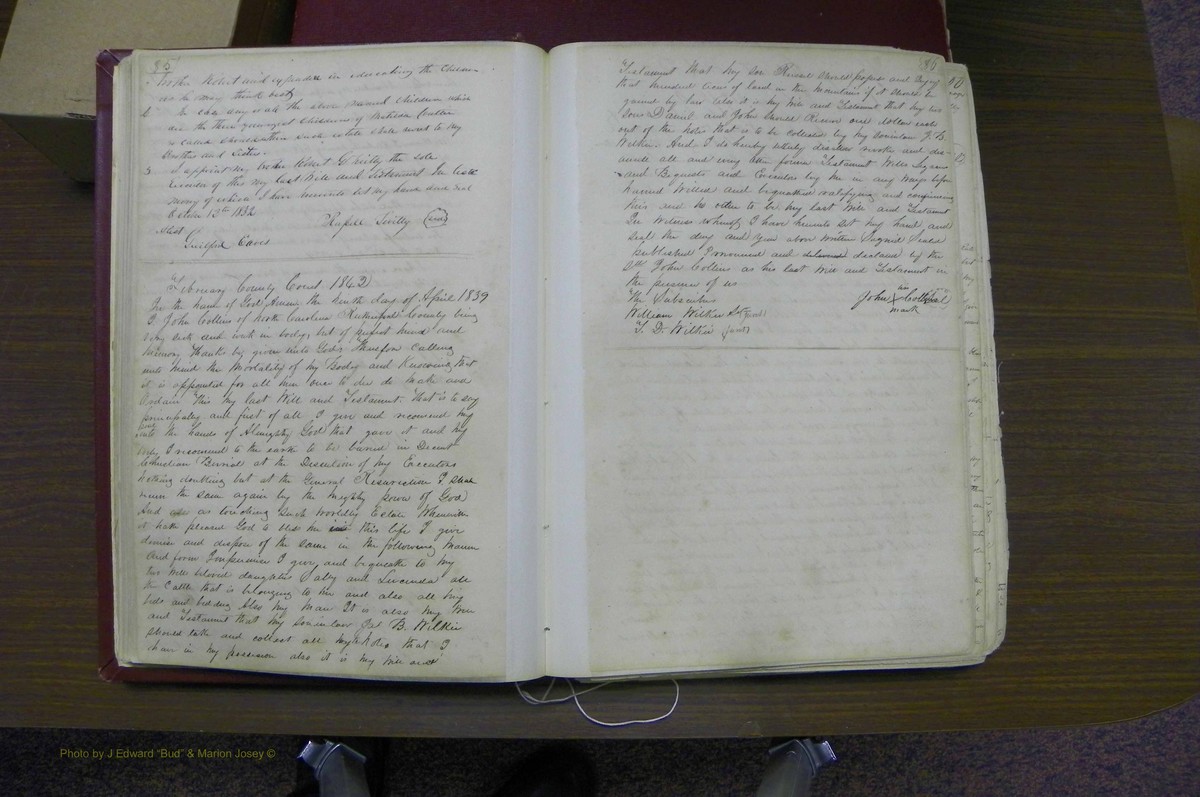 85
brother Robert and expended in educating the Children
as he may think best
In case any or all the above named children which
are the three youngest Children of
so called should then such estate shall next to my
Brother and Sister.
I appoint my brother Robert the sole
Executor of this my last Will and Testament In testi
mony of which I have hereunto set my hand and seal
13th 1832
(seal)
Attest
Guilford Eaves
February County Court 1842
In the name of God Amen. the tenth day of April 1839
I John Collins of North Carolina Rutherford County being
very sick and weak in body but of perfect mind and
memory thanks be given unto God Therefore Calling
unto mind the Mortality of my Body and Knowing that
it is appointed for all men once to die do make and
Ordain this my last Will and Testament. That is to say
principaley and first of all I give and recomend my
soul into the hands of Almighty God that gave it and my
body I recomend to the earth to be buried in Decent
Christian Burial at the Discretion of my Executors
nothing doubting but at the General Resurection I shall
receive the same again by the mighty power of God
And as touching such worldly Estate Wherewith
it hath pleased God to bless me in this life I give
demise and dispose of the same in the following manner
and form I give and bequeath to my
two well beloved daughters Saley and Lucinda all
the Cattle that is belonging to me and also all my
beds and bedding Also my Mare It is also my Will
and Testament that my soninlaw B. Wilkie
should take and collect all my Notes that I
have in my possession also it is my Will and
86
Testament that my son should posess and Enjoy
that hundred acres of land in the Mountain if it should be
gained by law Also it is my Will and Testament that my two
sons Daniel and John should Receive one dollar each
out of the Notes that is to be collected by my soninlaw
Wilkie. And I do hereby utterly disallow revoke and dis-
annule all and every other former Testament Wills Legacies
and Bequests and Executors by me in any ways before
named Willed and bequeathed ratifying and confirming
this and no other to be my last Will and Testament
In Witness whereof I have hereunto set my hand and
seal the day and year above written Signed Sealed
published Pronounced and delivered declared by the
Sd John Collins as his last Will and Testament in
the presence of us
The Subscribers
his
John X Collins (seal)
mark
William Wilkie (Jurat)
T. D. Wilkie (Jurat)
Photo by J Edward "Bud" & Marion Josey ©